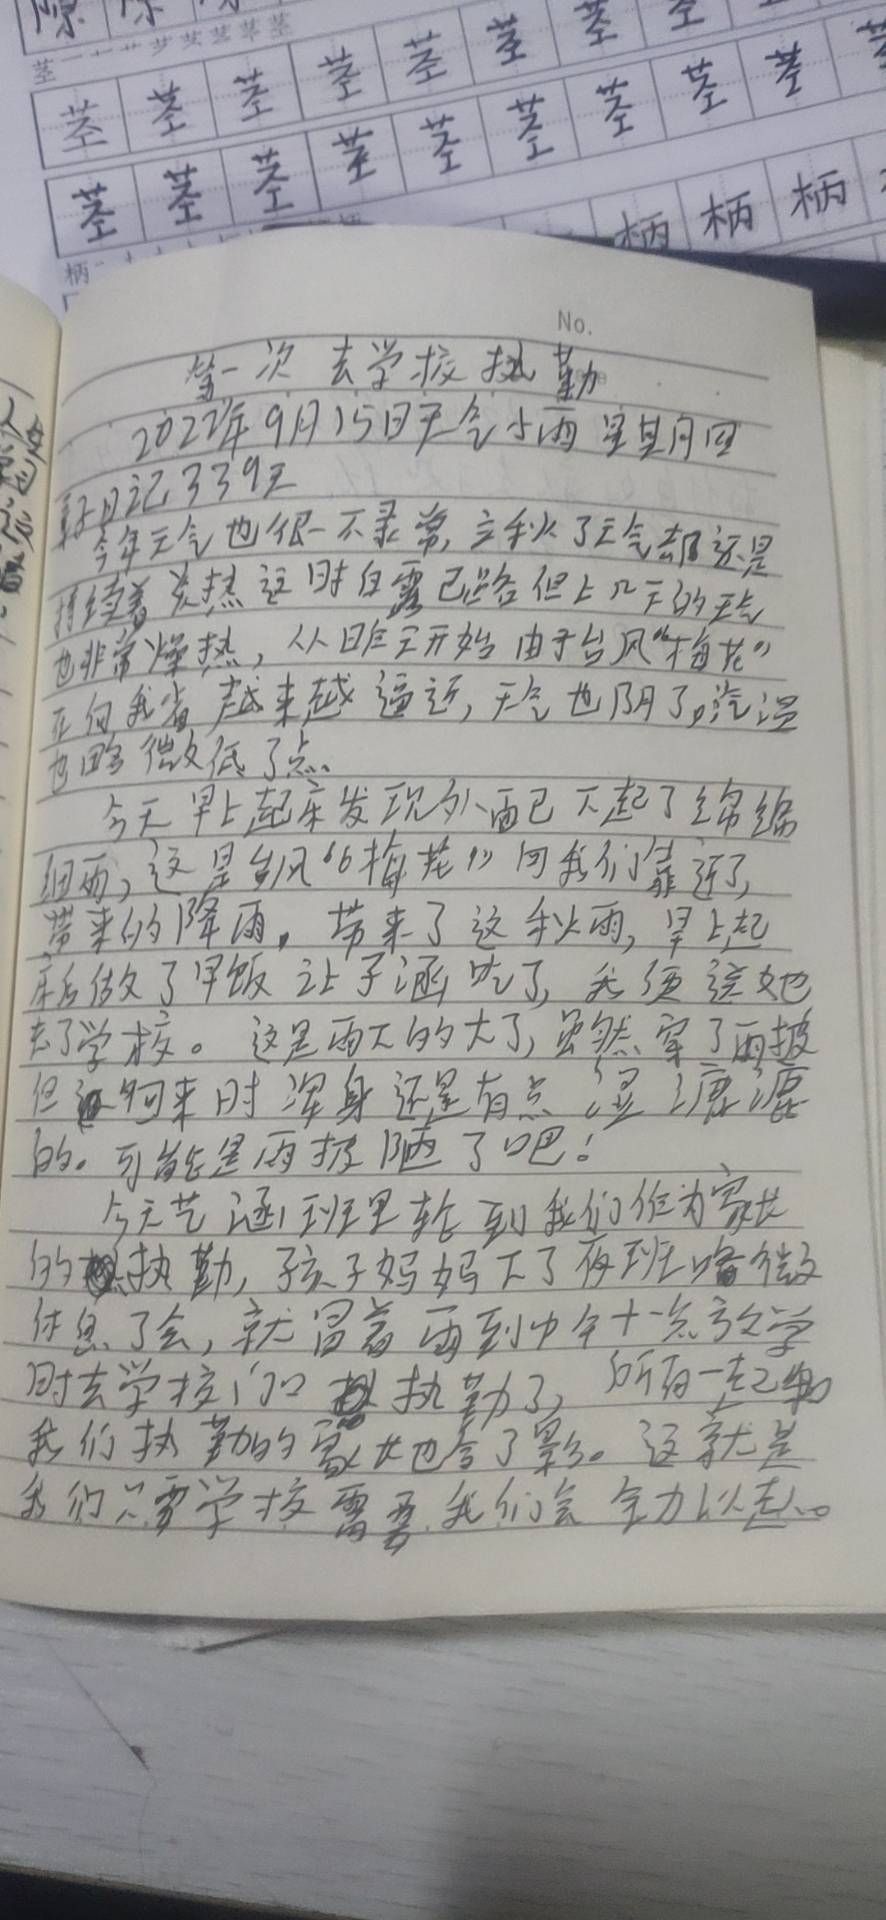 茎 茎 茎 茎 茎 茎 茎
茎 茎 茎 茎 茎 茎 茎 茎 茎
柄 柄 柄
柄
No.
第一次去学校执勤
2022年9月15日天气小雨星其月四
亲子日记339天
今年天气也很一不录常,立秋了天气却还是
持续着炎热这时白露已路但上几天的天气
也非常燥热,从昨天开始由于台风“梅花”
正向我省越来越逼近,天气也阴了,汽温
也略微低了点.
今天早上起床发现外面已下起了绵绵
细雨,这是台风“梅花”向我们靠近了,
带来的降雨,带来了这秋雨,早上起
床后做了早饭让子涵吃了,我须送她
去了学校。这是雨下的大了,虽然穿了雨披
但回来时浑身还是有点湿漉漉
的。可能是雨披晒了吧!
今天艺涵班里轮到我们作为家长
的执勤,孩子妈妈下了夜班略微
休息了会,就冒着雨到中午十一点放学
时去学校门口执勤了,所有一起和
我们执勤的家长也合了影。这就是
我们只要学校需要.我们会全力以赴..。